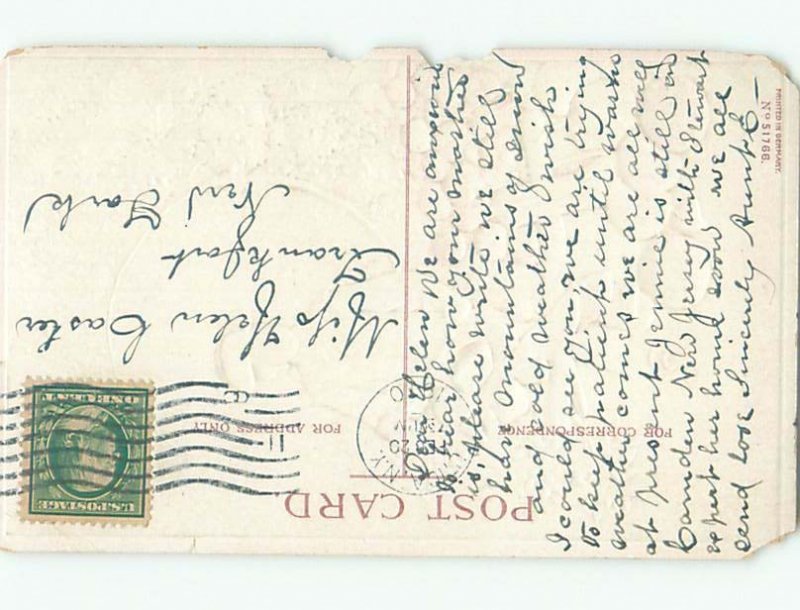 POST CARD
FOR CORRESPONDENCE
FOR ADDRESS ONLY
PRINTED IN GERMANY.
No 51766.
U.S. POSTAGE
ONE CENT
Miss Helen Caster
Frankfort
New York
Helen We are anxious
to hear how your mother
is please write we still
have mountains of snow
and cold weather I wish
I could see you we are trying
to keep patient until warm
weather comes we are all well
at present Jennie is still in
Camden New Jersey with Stewart
expect her home soon we all
send love Sincerely Aunt E